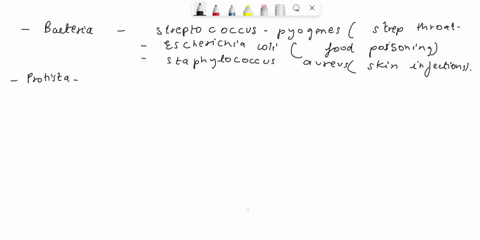 - Bacteria - streptococcus - pyogenes ( strep throat-
- Escherichia coli ( food poisoning)
- staphylococcus aureus( skin infections).
- Protista -